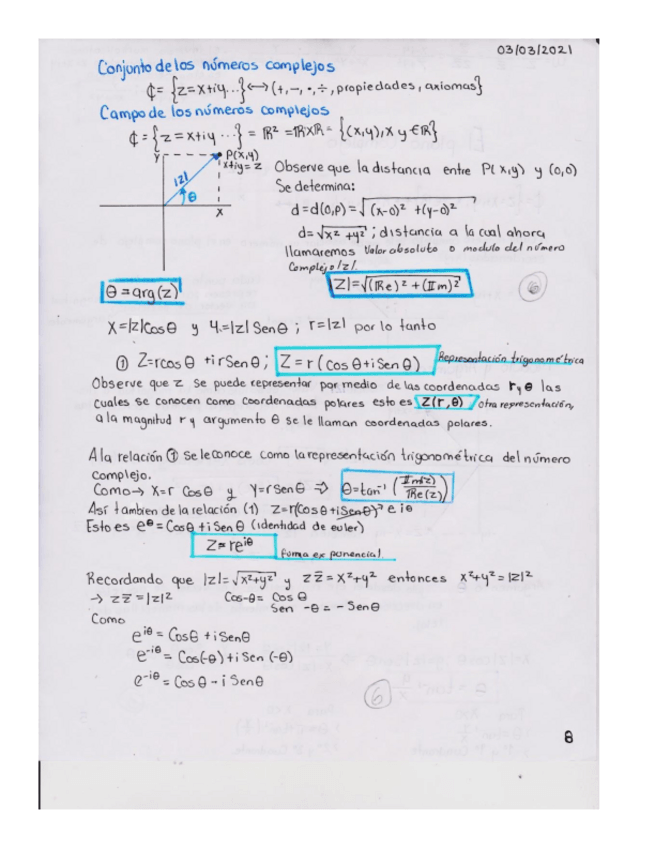 03/03/2021
Conjunto de los números complejos
ℂ= {z=x+iy...}↔(+,-,•,÷, propiedades, axiomas}
Campo de los números complejos
ℂ={z=x+iy ...} = ℝ² =ℝXℝ= {(x,y), x y ∈ℝ}
Y P(x,y)
x+iy=z
|z|
θ
X
Observe que la distancia entre P(x,y) y (0,0)
Se determina:
d=d(0,p)=√(x-0)² +(y-0)²
d=√x²+y² ; distancia a la cual ahora
llamaremos Valor absoluto o modulo del número
Complejo |z|.
θ=arg(z)
Z|=√(ℝe)² + (𝕀m)²
6
X=|z|Cosθ y Y.=|z| Senθ ; r=|z| por lo tanto
① Z=rcosθ +irSenθ; Z=r(cosθ+iSenθ) Representación trigonométrica
Observe que z se puede representar por medio de las coordenadas r,yθ las
cuales se conocen como coordenadas polares esto es Z(r,θ) otra representación,
a la magnitud r y argumento θ se le llaman coordenadas polares.
A la relación ① Se le conoce como la representación trigonométrica del número
complejo.
Como→ X=r Cosθ y Y=rSenθ ⇒ θ=tan⁻¹ (𝕀m(z)/ℝe(z))
Así tambien de la relación (1) Z=r(Cosθ+iSenθ)⁷ e iθ
Esto es eᶿ=Cosθ+iSenθ (identidad de euler)
Z=re^iθ forma exponencial
Recordando que |z|=√x²+y² y z z̄ = x²+y² entonces x²+y²=|z|²
→ z z̄ =|z|² Cos-θ= Cosθ
Sen -θ = -Senθ
Como
e^iθ = Cosθ +iSenθ
e^-iθ = Cos(-θ)+iSen(-θ)
e^-iθ = Cosθ - i Senθ
6
8